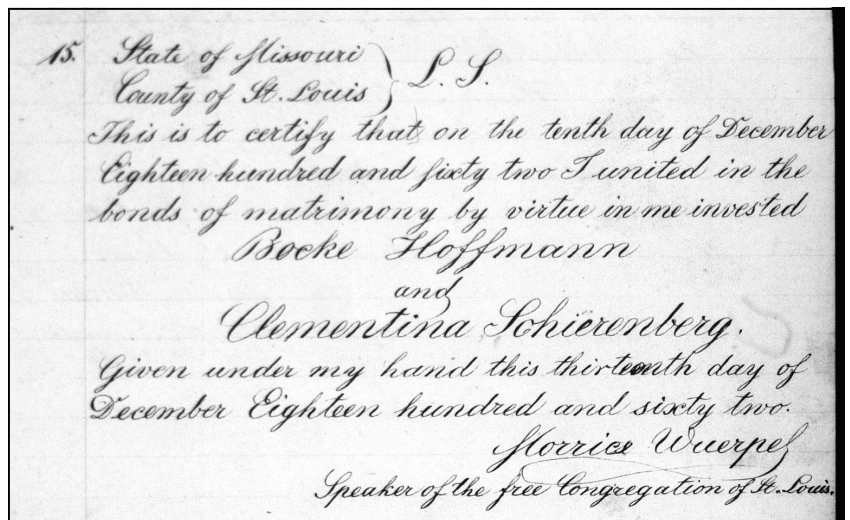 15. State of Missouri } L. S.
County of St. Louis
This is to certify that on the tenth day of December
Eighteen hundred and sixty two I united in the
bonds of matrimony by virtue in me invested
Bocke Hoffmann
and
Clementina Schierenberg.
Given under my hand this thirteenth day of
December Eighteen hundred and sixty two.
Morrice Wuerpel
Speaker of the free Congregation of St. Louis.